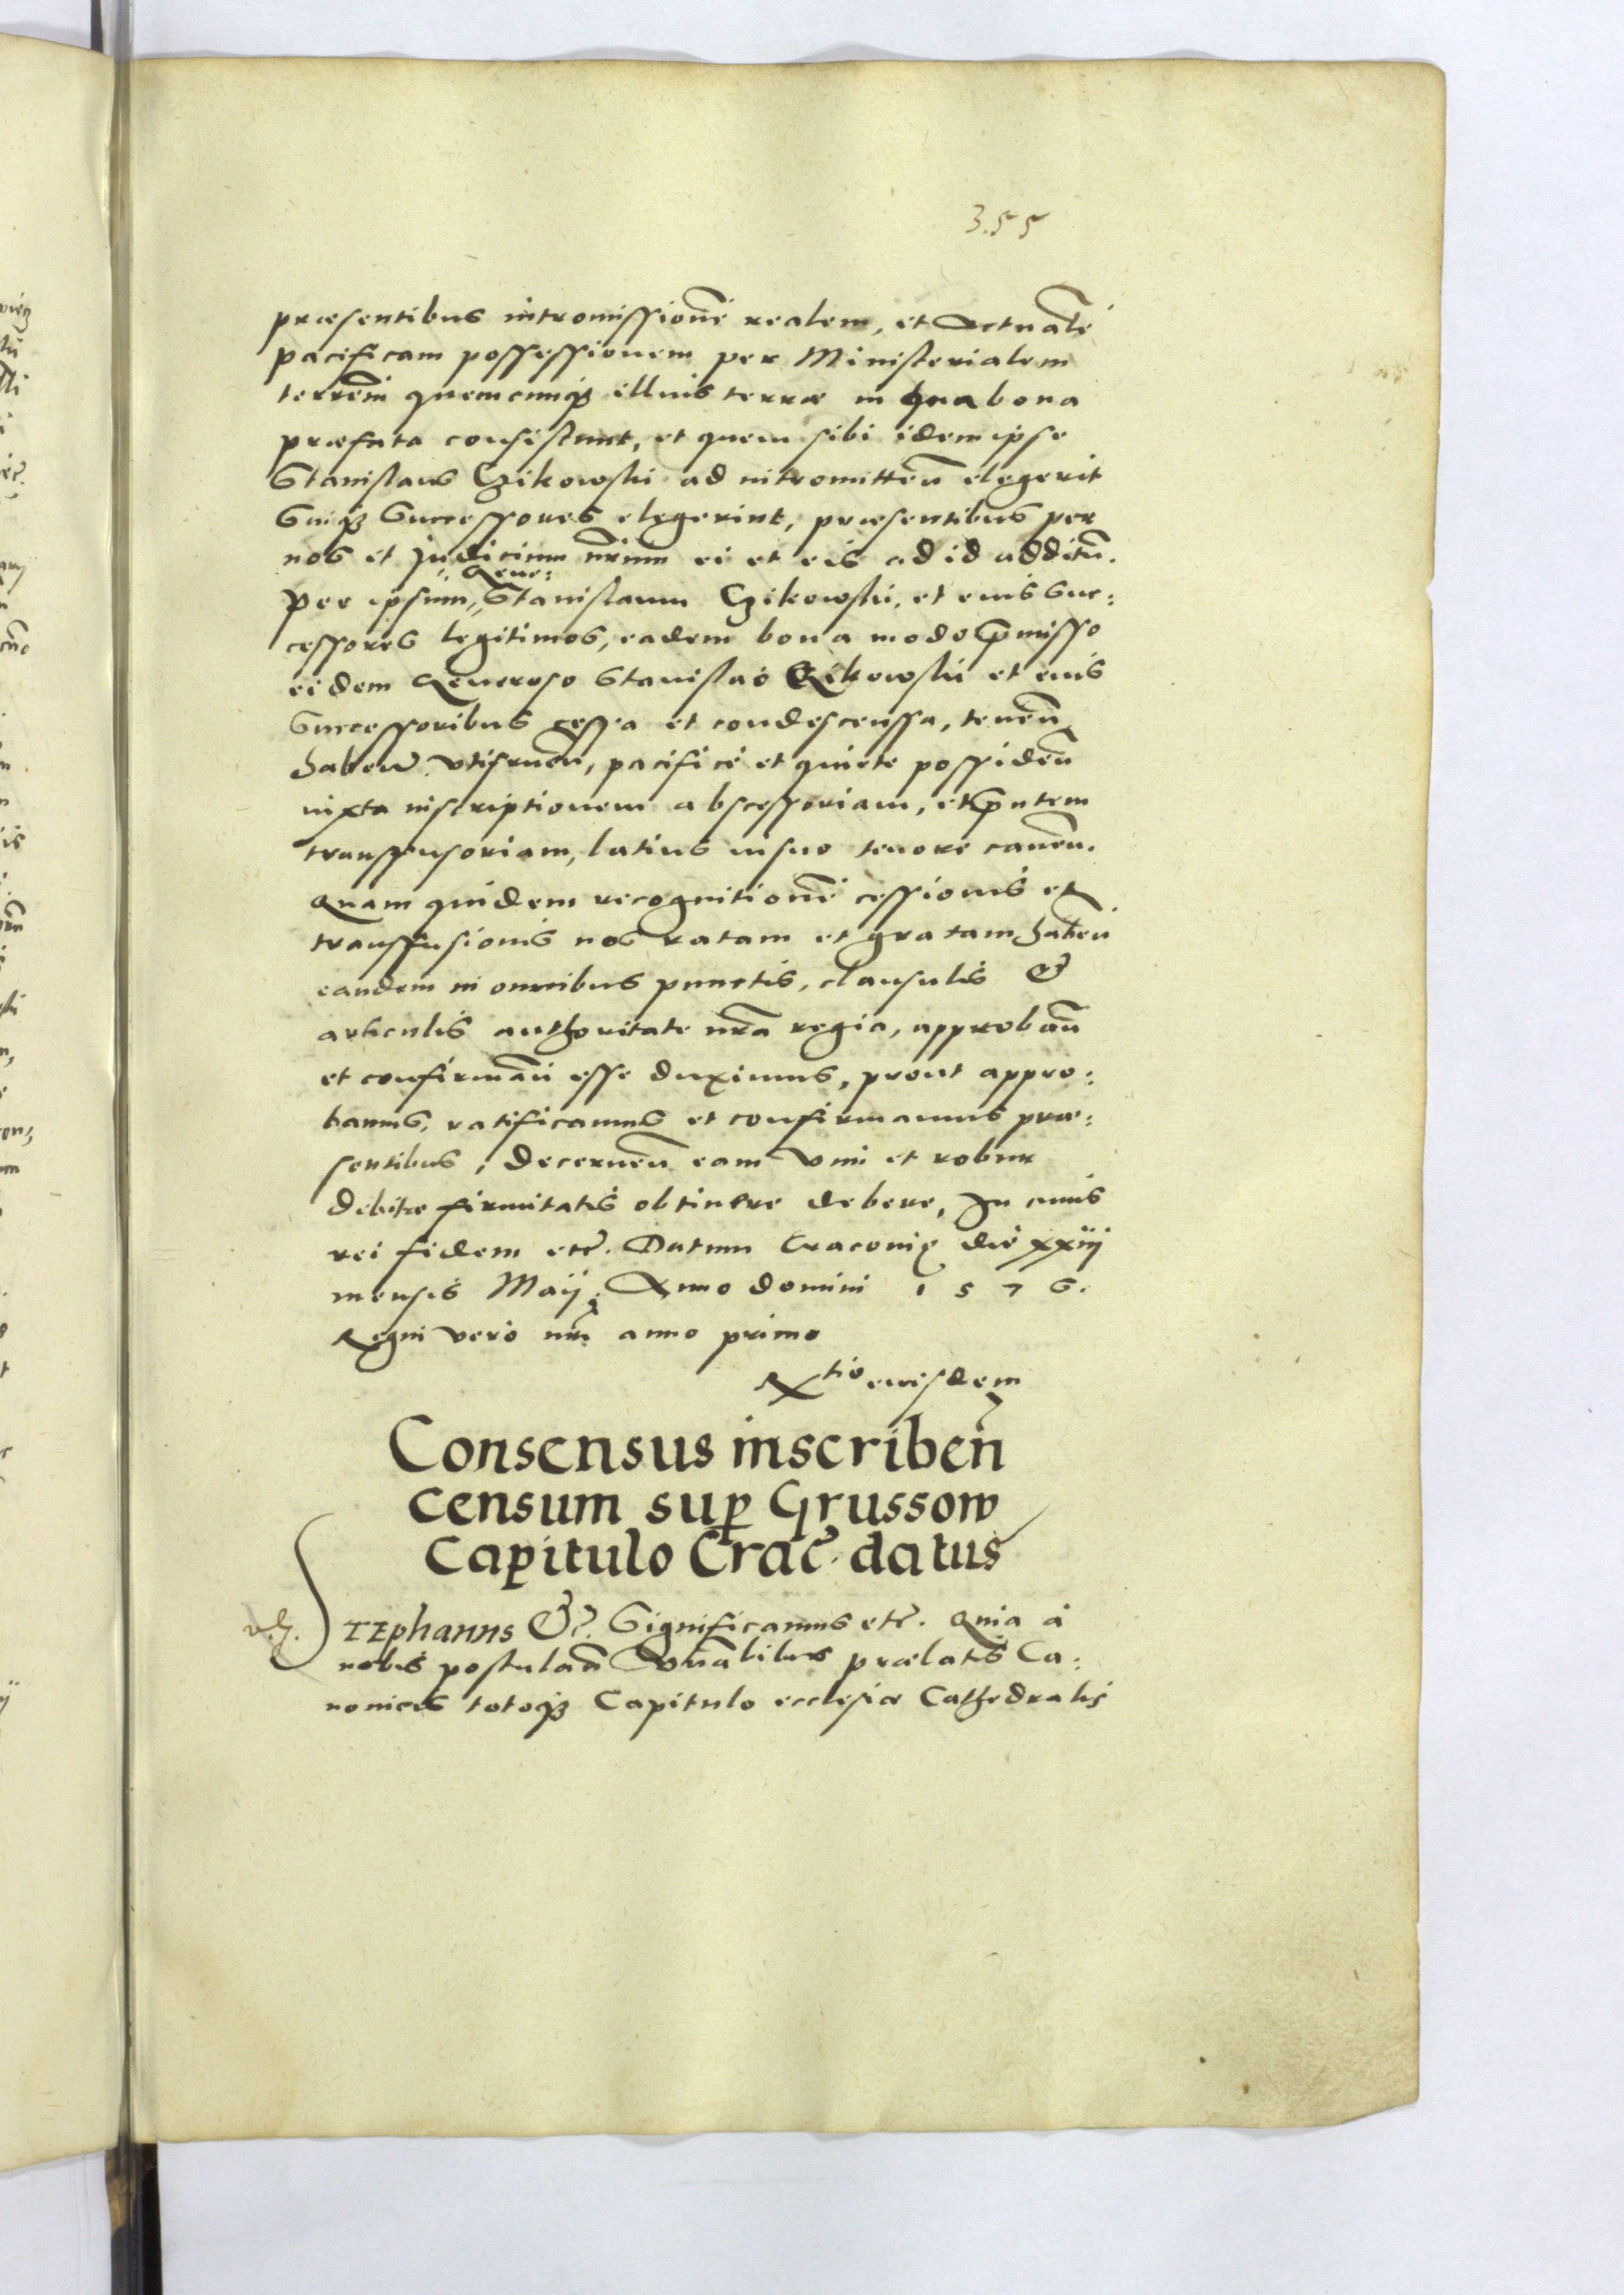 355
præsentibus intromissionē realem, et Actualē
pacificam possessionem per Ministerialem
terrēm quemcunqȝ illius terræ in qua bona
præfata consistunt, et quem sibi idem ipse
Stanislaus Czikowski ad intromittēn elegerit
Suiqȝ Successores elegerint, præsentibus per
nos et Judicium nrūm ei et eis ad id additū.
Per ipsum Gene: Stanislaum Czikowski, et eius Suc:
cessores legitimos, eadem bona modo p̄misso
eidem Generoso Stanislao Czikowski et eius
Successoribus cessa et condescenssa, tenēn
habēn utifruēn, pacificè et quiete possidēn
iuxta inscriptionem abscessoriam, et p̄ntem
transfusoriam, latius in suo tenore canēn.
Quam quidem recognitionē cessionis et
transfusionis nos ratam et gratam habēn
eandem in omnibus punctis, clausulis &
articulis authoritate nrā regia, approbān
et confirmān esse duximus, prout appro:
bamus, ratificamus et confirmamus præ:
sentibus, decernēn eam vim et robur
debitæ firmitatis obtinere debere, In cuius
rei fidem etc̄. Datum Cracovię die xxiij
mensis Maij. Anno domini 1576.
Regni vero nrī anno primo
Rtio eiusdem
Consensus inscribēn
censum sup Grussow
Capitulo Crac̄. datus
STEphanus &c̄. Significamus etc̄. Quia à
nobis postulān Venālibus prælatis Ca:
nonicis totoqȝ Capitulo ecclesiæ Cathedralis